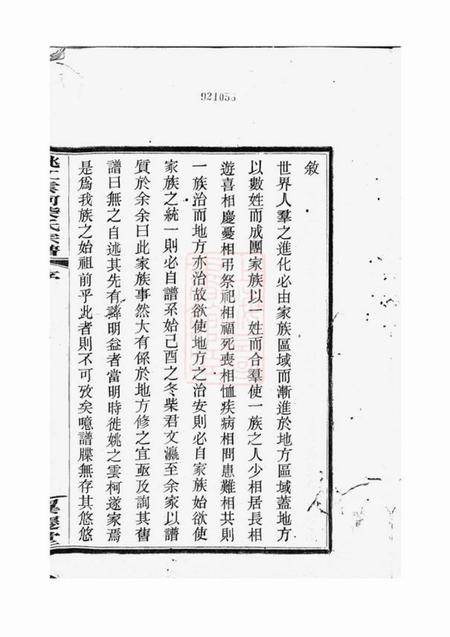 921055
敘
世界人羣之進化必由家族區域而漸進於地方區域蓋地方
以數姓而成團家族以一姓而合羣使一族之人少相居長相
遊喜相慶憂相弔祭祀相福死喪相恤疾病相問患難相共則
一族治而地方亦治故欲使地方之治安則必自家族始欲使
家族之統一則必自譜系始己酉之冬柴君文瀛至余家以譜
質於余余曰此家族事然大有係於地方修之宜亟及詢其舊
譜曰無之自述其先有壽明益者當明時徙姚之雲柯遂家焉
是爲我族之始祖前乎此者則不可攷矣噫譜牒無存其悠悠
姚江雲柯柴氏宗譜
序